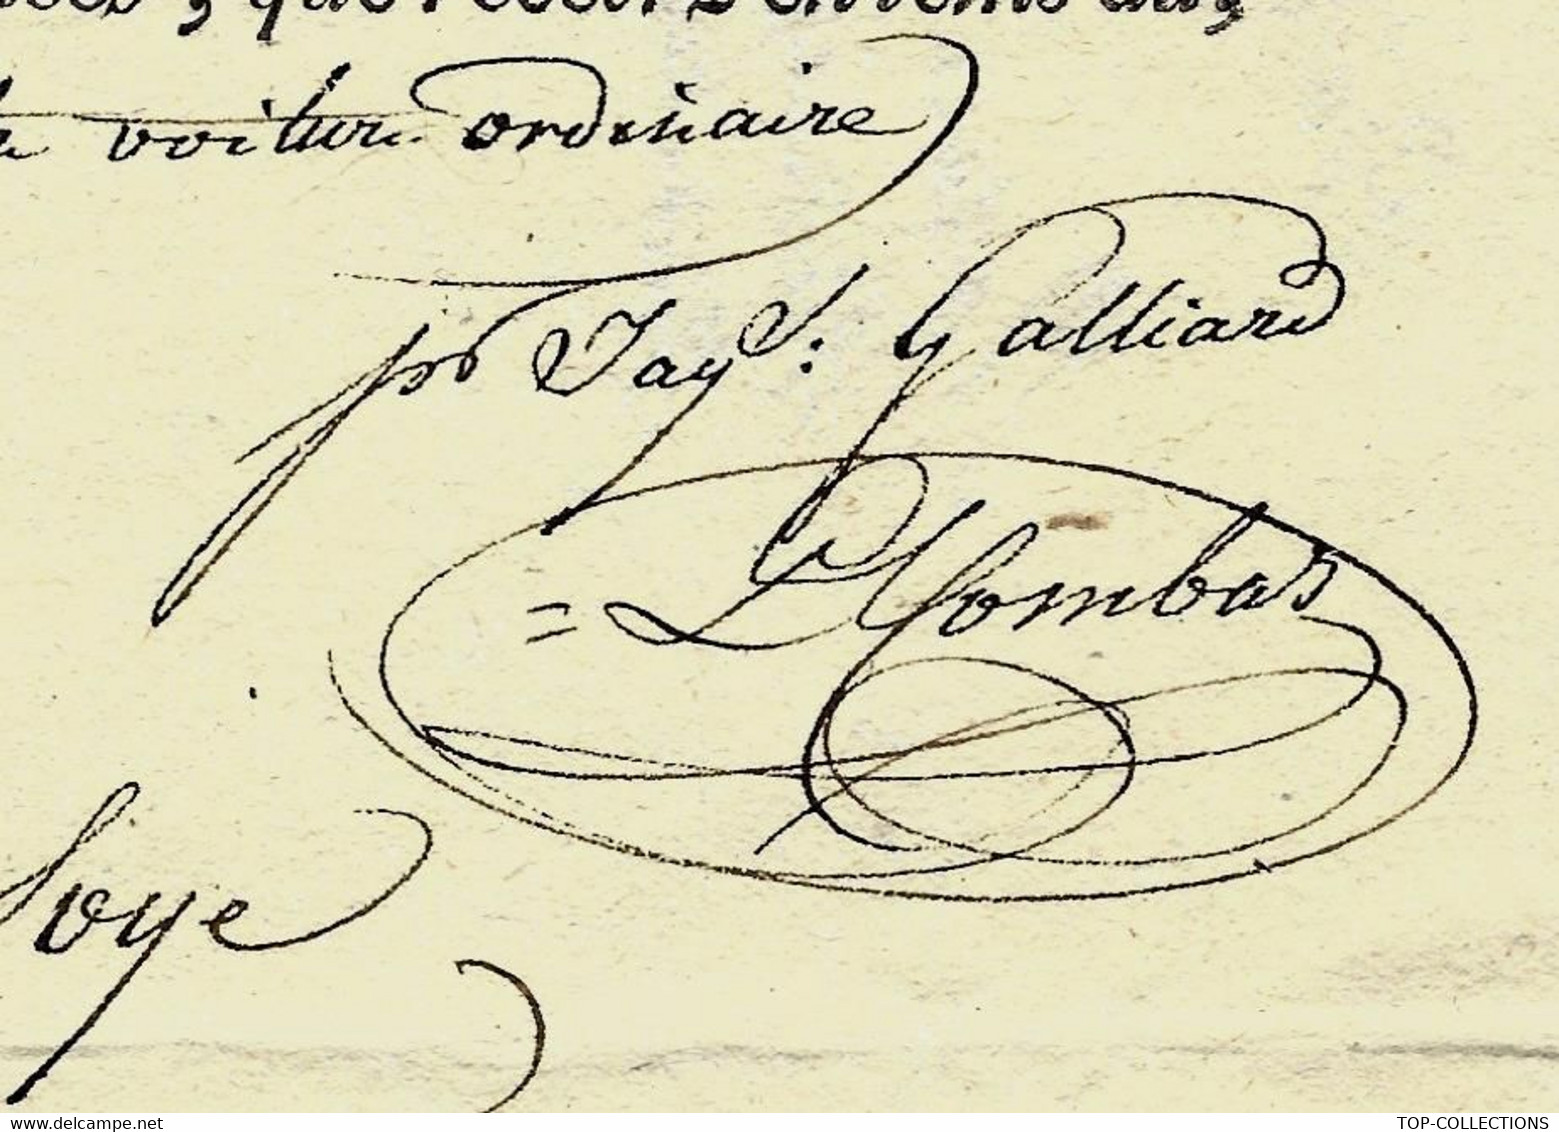 voiture ordinaire
pr Jay J: Galliard
= L Combas
Soye
delcampe.net
TOP-COLLECTIONS